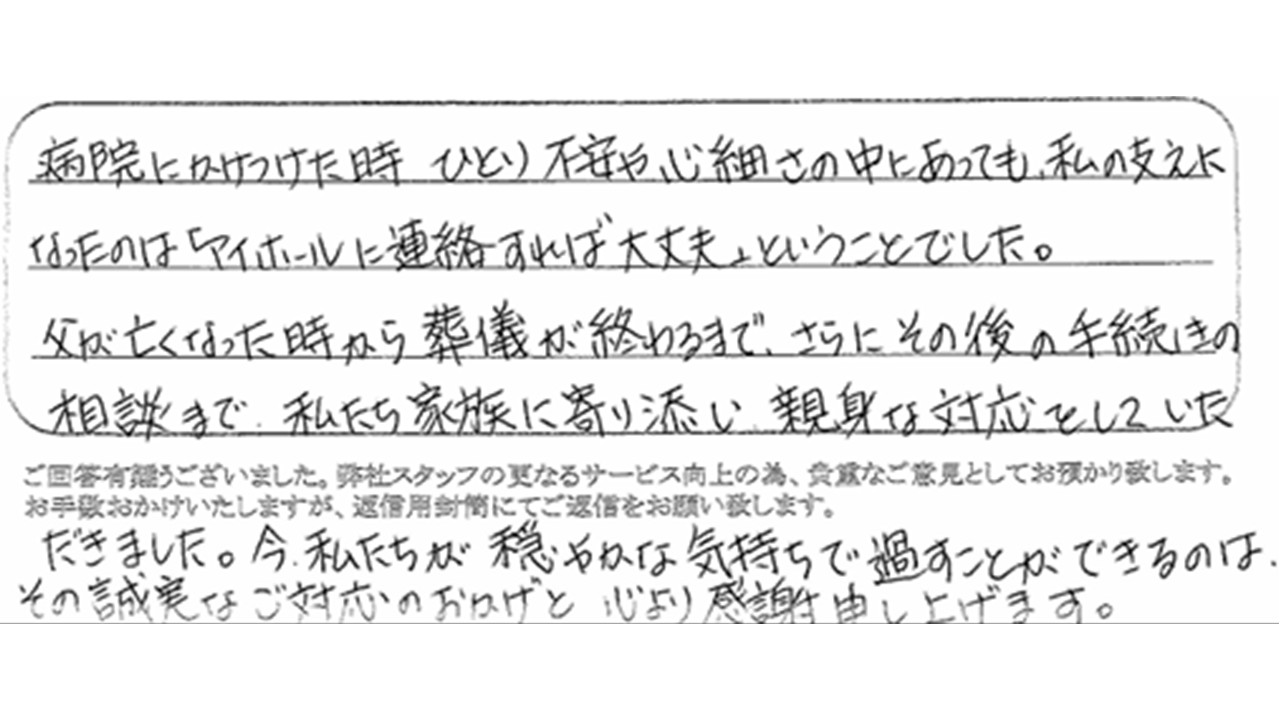 病院にかけつけた時 ひとり不安や心細さの中にあっても、私の支えに
なったのは「アイホールに連絡すれば大丈夫」ということでした。
父が亡くなった時から葬儀が終わるまで、さらにその後の手続きの
相談まで、私たち家族に寄り添い、親身な対応をしていた
ご回答有難うございました。弊社スタッフの更なるサービス向上の為、貴重なご意見としてお預かり致します。
お手数おかけいたしますが、返信用封筒にてご返信をお願い致します。
だきました。今、私たちが穏やかな気持ちで過すことができるのは、
その誠実なご対応のおかげと 心より感謝申し上げます。